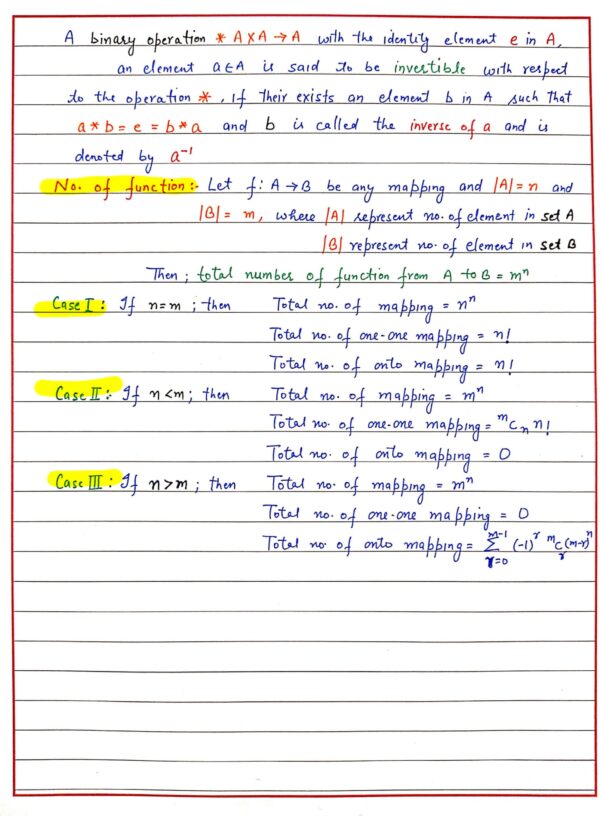 A binary operation * A×A → A with the identity element e in A,
an element a∈A is said to be invertible with respect
to the operation *, if their exists an element b in A such that
a * b = e = b * a and b is called the inverse of a and is
denoted by a⁻¹
No. of function:- Let f: A → B be any mapping and |A| = n and
|B| = m, where |A| represent no. of element in set A
|B| represent no. of element in set B
Then ; total number of function from A to B = mⁿ
Case I : If n=m ; then Total no. of mapping = nⁿ
Total no. of one-one mapping = n!
Total no. of onto mapping = n!
Case II :- If n<m ; then Total no. of mapping = mⁿ
Total no. of one-one mapping = ᵐCₙ n!
Total no. of onto mapping = 0
Case III : If n>m ; then Total no. of mapping = mⁿ
Total no. of one-one mapping = 0
Total no. of onto mapping = ∑_{r=0}^{m-1} (-1)^r ᵐC_r (m-r)ⁿ